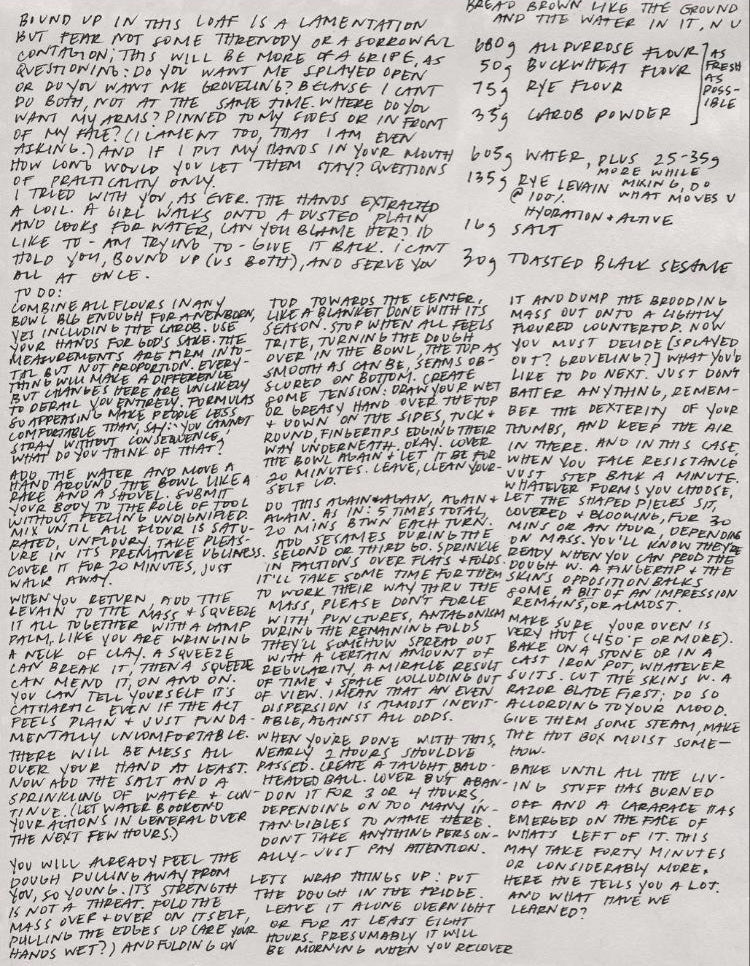 BOUND UP IN THIS LOAF IS A LAMENTATION
BUT FEAR NOT SOME THRENODY OR A SORROWFUL
CONTAGION; THIS WILL BE MORE OF A GRIPE, AS
QUESTIONING: DO YOU WANT ME SPLAYED OPEN
OR DO YOU WANT ME GROVELING? BECAUSE I CANT
DO BOTH, NOT AT THE SAME TIME. WHERE DO YOU
WANT MY ARMS? PINNED TO MY SIDES OR IN FRONT
OF MY FACE? (I LAMENT TOO, THAT I AM EVEN
ASKING.) AND IF I PUT MY HANDS IN YOUR MOUTH
HOW LONG WOULD YOU LET THEM STAY? QUESTIONS
OF PRACTICALITY ONLY.
I TRIED WITH YOU, AS EVER. THE HANDS EXTRACTED
A COIL. A GIRL WALKS ONTO A DUSTED PLAIN
AND LOOKS FOR WATER, CAN YOU BLAME HER? I'D
LIKE TO - AM TRYING TO - GIVE IT BACK. I CANT
HOLD YOU, BOUND UP (US BOTH), AND SERVE YOU
ALL AT ONCE.
BREAD BROWN LIKE THE GROUND
AND THE WATER IN IT, N U
680g ALL PURPOSE FLOUR
50g BUCKWHEAT FLOUR
75g RYE FLOUR
35g CAROB POWDER
AS
FRESH
AS
POSS-
IBLE
605g WATER, PLUS 25-35g
MORE WHILE
MIXING, DO
WHAT MOVES U
135g RYE LEVAIN
@ 100%
HYDRATION + ACTIVE
16g SALT
30g TOASTED BLACK SESAME
TO DO:
COMBINE ALL FLOURS IN ANY
BOWL BIG ENOUGH FOR A NEWBORN,
YES INCLUDING THE CAROB. USE
YOUR HANDS FOR GOD'S SAKE. THE
MEASUREMENTS ARE FIRM IN TO-
TAL BUT NOT PROPORTION. EVERY-
THING WILL MAKE A DIFFERENCE
BUT CHANGES HERE ARE UNLIKELY
TO DERAIL YOU ENTIRELY. FORMULAS
SO APPEASING MAKE PEOPLE LESS
COMFORTABLE THAN, SAY: "YOU CANNOT
STRAY WITHOUT CONSEQUENCE,"
WHAT DO YOU THINK OF THAT?
ADD THE WATER AND MOVE A
HAND AROUND THE BOWL LIKE A
RAKE AND A SHOVEL. SUBMIT
YOUR BODY TO THE ROLE OF TOOL
WITHOUT FEELING UNDIGNIFIED.
MIX UNTIL ALL FLOUR IS SATU-
RATED, UNFLOURY. TAKE PLEAS-
URE IN ITS PREMATURE UGLINESS.
COVER IT FOR 20 MINUTES, JUST
WALK AWAY.
WHEN YOU RETURN, ADD THE
LEVAIN TO THE MASS + SQUEEZE
IT ALL TOGETHER WITH A DAMP
PALM, LIKE YOU ARE WRINGING
A NECK OF CLAY. A SQUEEZE
CAN BREAK IT, THEN A SQUEEZE
CAN MEND IT, ON AND ON.
YOU CAN TELL YOURSELF IT'S
CATHARTIC EVEN IF THE ACT
FEELS PLAIN + JUST FUNDA-
MENTALLY UNCOMFORTABLE.
THERE WILL BE MESS ALL
OVER YOUR HAND AT LEAST.
NOW ADD THE SALT AND A
SPRINKLING OF WATER + CON-
TINUE. (LET WATER BOOKEND
YOUR ACTIONS IN GENERAL OVER
THE NEXT FEW HOURS.)
YOU WILL ALREADY FEEL THE
DOUGH PULLING AWAY FROM
YOU, SO YOUNG. ITS STRENGTH
IS NOT A THREAT. FOLD THE
MASS OVER + OVER ON ITSELF,
PULLING THE EDGES UP (ARE YOUR
HANDS WET?) AND FOLDING ON
TOP TOWARDS THE CENTER,
LIKE A BLANKET DONE WITH ITS
SEASON. STOP WHEN ALL FEELS
TRITE, TURNING THE DOUGH
OVER IN THE BOWL, THE TOP AS
SMOOTH AS CAN BE, SEAMS OB-
SCURED ON BOTTOM. CREATE
SOME TENSION: DRAW YOUR WET
OR GREASY HAND OVER THE TOP
+ DOWN ON THE SIDES, TUCK +
ROUND, FINGERTIPS EDGING THEIR
WAY UNDERNEATH. OKAY. COVER
THE BOWL AGAIN + LET IT BE FOR
20 MINUTES. LEAVE, CLEAN YOUR-
SELF UP.
DO THIS AGAIN + AGAIN, AGAIN +
AGAIN. AS IN: 5 TIMES TOTAL,
20 MINS BTWN EACH TURN.
ADD SESAMES DURING THE
SECOND OR THIRD GO. SPRINKLE
IN FACTIONS OVER FLATS + FOLDS.
IT'LL TAKE SOME TIME FOR THEM
TO WORK THEIR WAY THRU THE
MASS, PLEASE DON'T FORCE
WITH PUNCTURES, ANTAGONISM
DURING THE REMAINING FOLDS
THEY'LL SOMEHOW SPREAD OUT
WITH A CERTAIN AMOUNT OF
REGULARITY, A MIRACLE RESULT
OF TIME + SPACE COLLUDING OUT
OF VIEW. I MEAN THAT AN EVEN
DISPERSION IS ALMOST INEVIT-
ABLE, AGAINST ALL ODDS.
WHEN YOU'RE DONE WITH THIS,
NEARLY 2 HOURS SHOULD'VE
PASSED. CREATE A TAUGHT, BALD-
HEADED BALL. COVER BUT ABAN-
DON IT FOR 3 OR 4 HOURS
DEPENDING ON TOO MANY IN-
TANGIBLES TO NAME HERE.
DON'T TAKE ANYTHING PERSON-
ALLY - JUST PAY ATTENTION.
LETS WRAP THINGS UP: PUT
THE DOUGH IN THE FRIDGE.
LEAVE IT ALONE OVERNIGHT
OR FOR AT LEAST EIGHT
HOURS. PRESUMABLY IT WILL
BE MORNING WHEN YOU RECOVER
IT AND DUMP THE BROODING
MASS OUT ONTO A LIGHTLY
FLOURED COUNTERTOP. NOW
YOU MUST DECIDE [SPLAYED
OUT? GROVELING?] WHAT YOU'D
LIKE TO DO NEXT. JUST DON'T
BATTER ANYTHING, REMEM-
BER THE DEXTERITY OF YOUR
THUMBS, AND KEEP THE AIR
IN THERE. AND IN THIS CASE,
WHEN YOU FACE RESISTANCE
JUST STEP BACK A MINUTE.
WHATEVER FORMS YOU CHOOSE,
LET THE SHAPED PIECES SIT,
COVERED + BLOOMING, FOR 30
MINS OR AN HOUR, DEPENDING
ON MASS. YOU'LL KNOW THEY'RE
READY WHEN YOU CAN PROD THE
DOUGH W. A FINGERTIP + THE
SKIN'S OPPOSITION BALKS
SOME. A BIT OF AN IMPRESSION
REMAINS, OR ALMOST.
MAKE SURE YOUR OVEN IS
VERY HOT (450°F OR MORE).
BAKE ON A STONE OR IN A
CAST IRON POT, WHATEVER
SUITS. CUT THE SKINS W. A
RAZOR BLADE FIRST; DO SO
ACCORDING TO YOUR MOOD.
GIVE THEM SOME STEAM, MAKE
THE HOT BOX MOIST SOME-
HOW.
BAKE UNTIL ALL THE LIV-
ING STUFF HAS BURNED
OFF AND A CARAPACE HAS
EMERGED ON THE FACE OF
WHAT'S LEFT OF IT. THIS
MAY TAKE FORTY MINUTES
OR CONSIDERABLY MORE.
HERE HUE TELLS YOU A LOT.
AND WHAT HAVE WE
LEARNED?